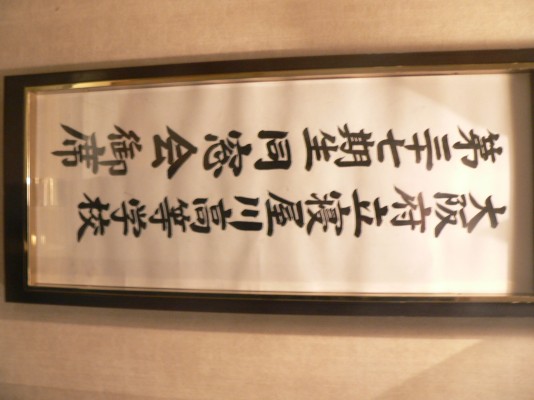 大阪府立寝屋川高等学校
第二十七期生同窓会御席